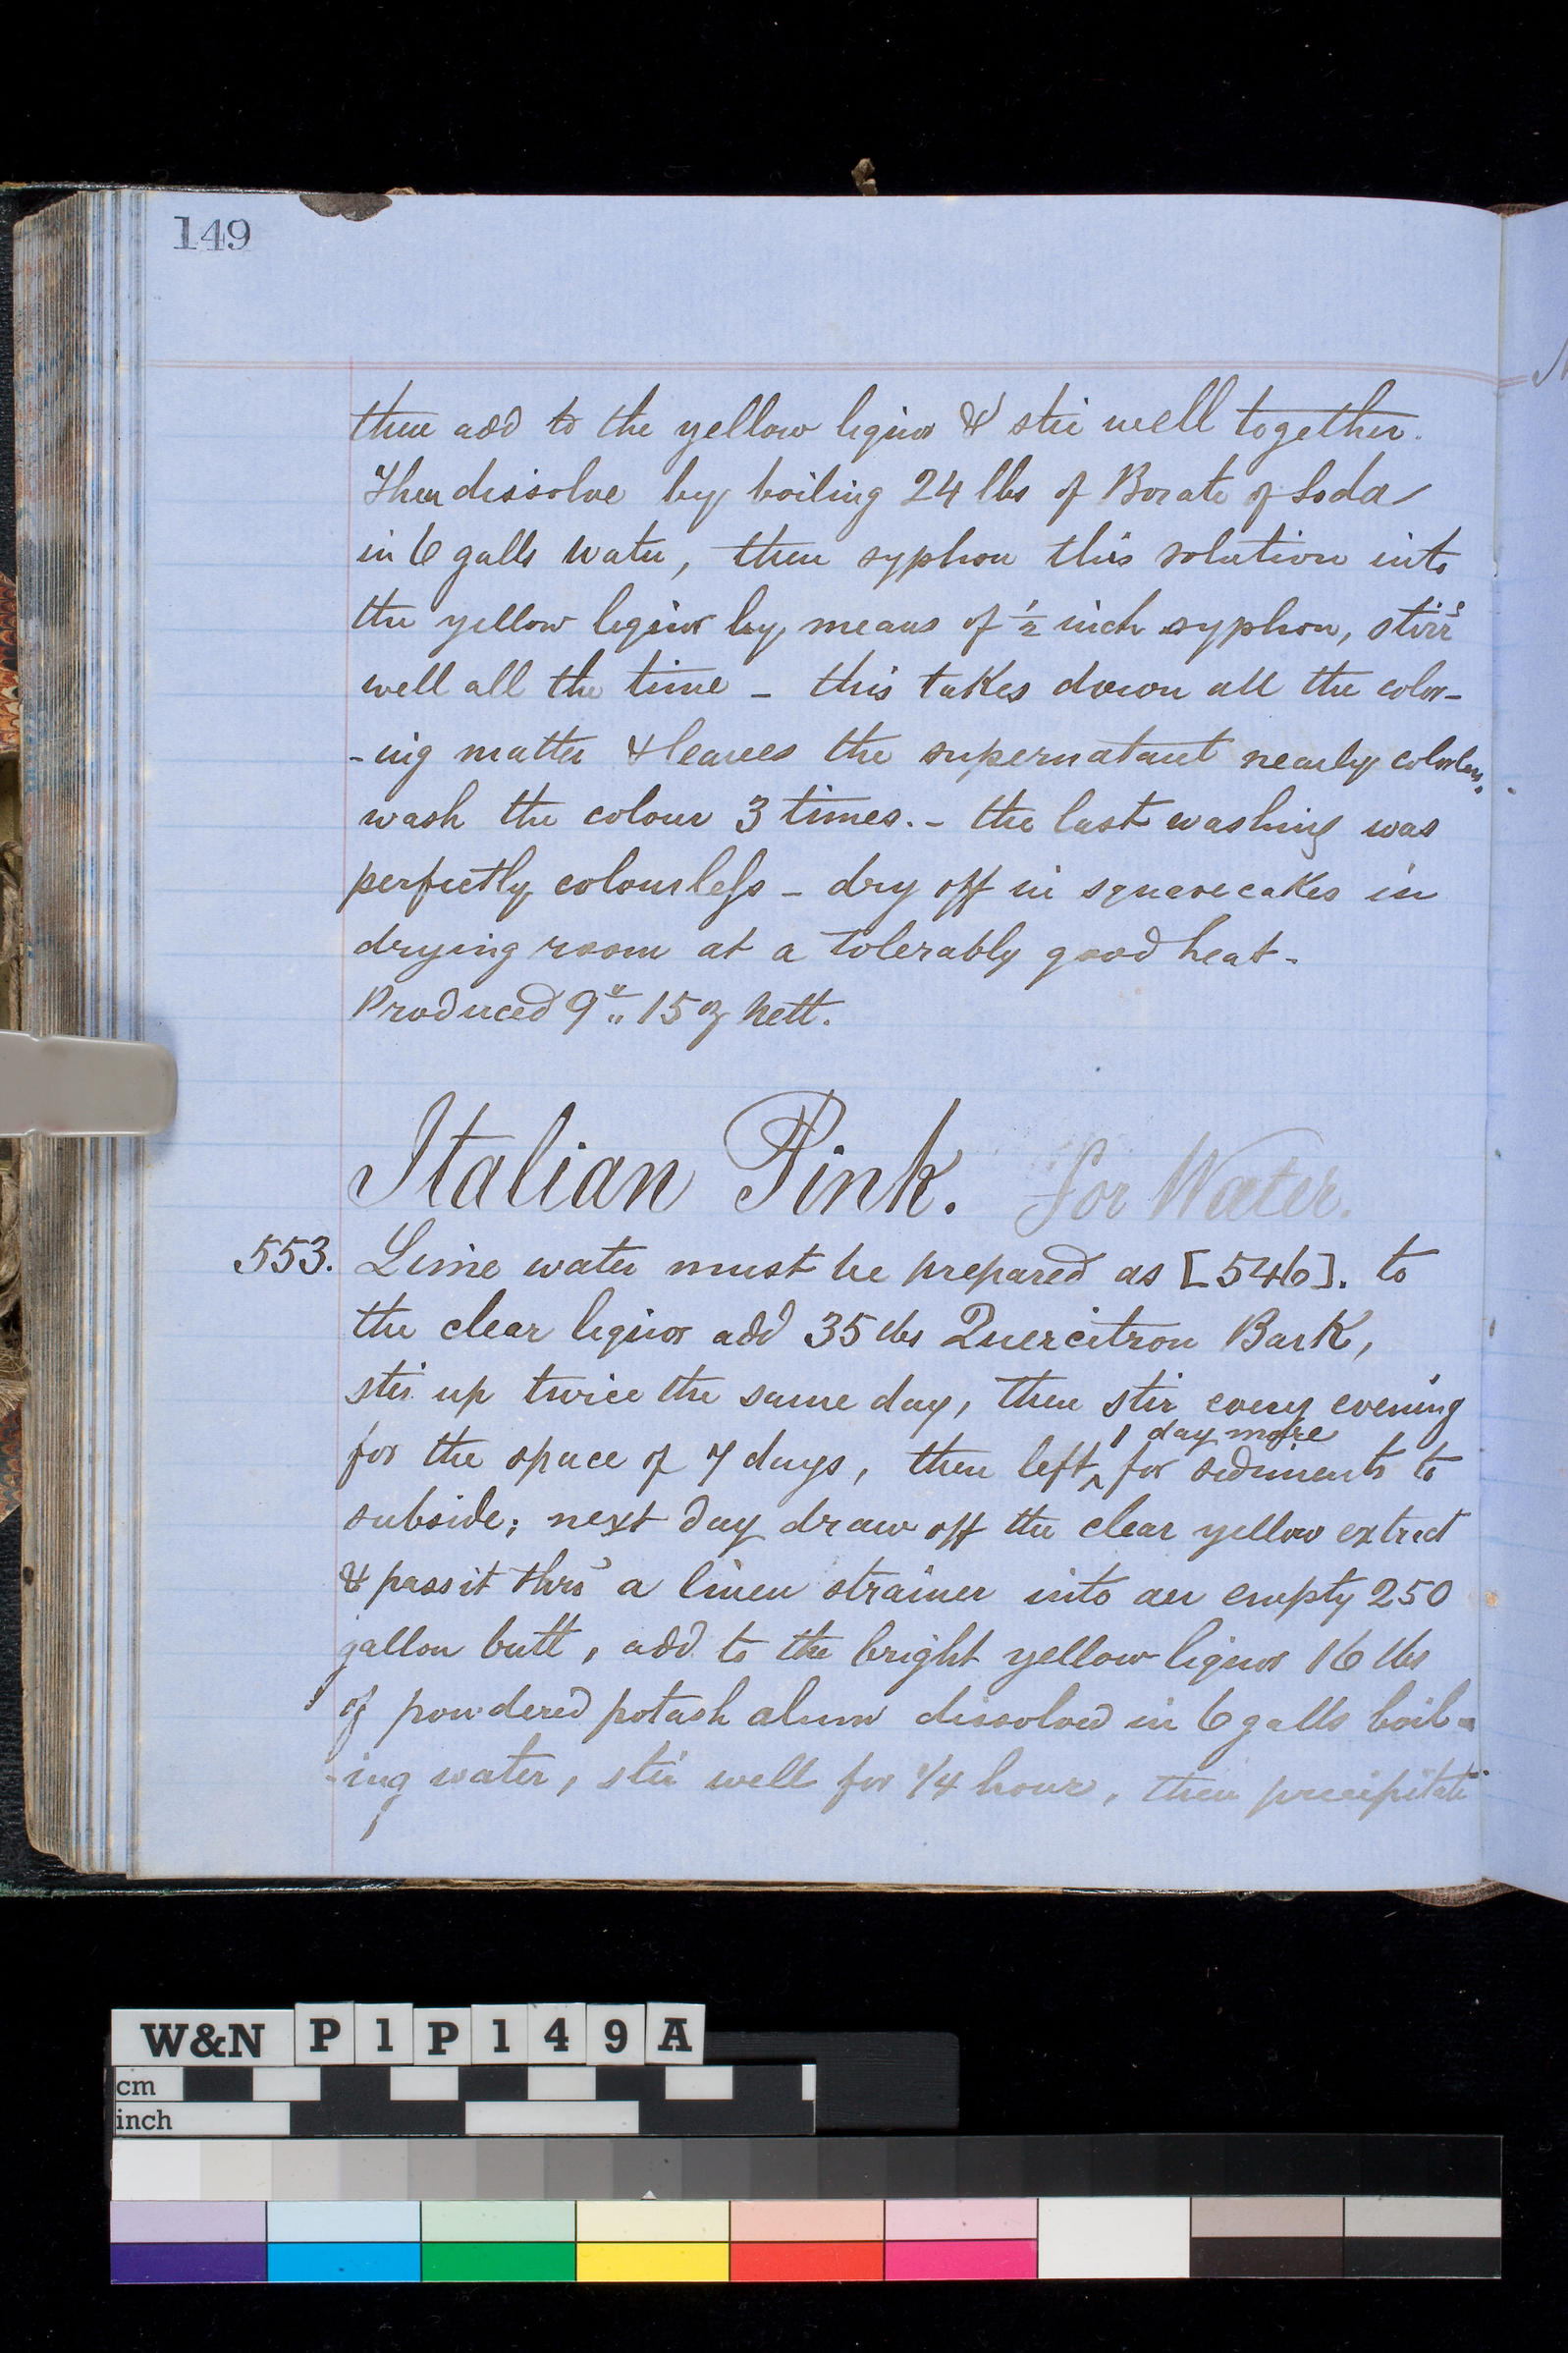 149
then add to the yellow liquor & stir well together.
Then dissolve by boiling 24 lbs of Borate of Soda
in 6 galls water, then syphon this solution into
the yellow liquor by means of ½ inch syphon, stirrg
well all the time – this takes down all the color-
-ing matter & leaves the supernatant nearly colorless.
wash the colour 3 times. – the last washing was
perfectly colourless – dry off in square cakes in
drying room at a tolerably good heat –
Produced 9 " 15 oz nett.
Italian Pink. for Water.
553. Lime water must be prepared as [546]. to
the clear liquor add 35 lbs Quercitron Bark,
stir up twice the same day, then stir every evening
1 day more
for the space of 7 days, then left ^ for sediments to
subside; next day draw off the clear yellow extract
& pass it thro' a linen strainer into an empty 250
gallon butt, add to the bright yellow liquor 16 lbs
of powdered potash alum dissolved in 6 galls boil-
-ing water, stir well for 1/4 hour, then precipitate
W&N P1P149A
cm
inch